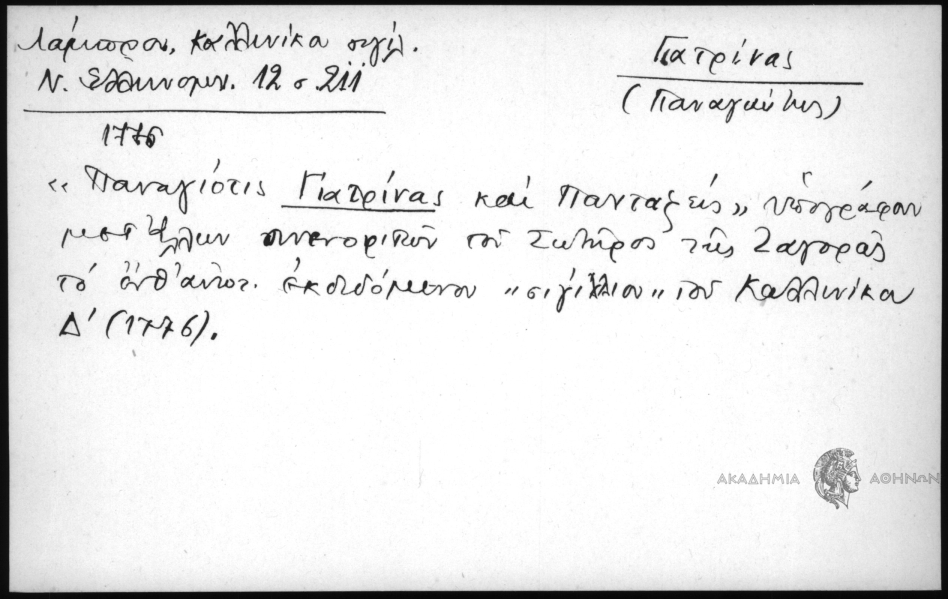 Λάμπρου, Καλλινίκα σιγίλ.
Ν. Ελληνομν. 12 σ. 211
Γιατρίνας
(Παναγιώτης)
1776
«Παναγιότις Γιατρίνας καί Πανταζείς» υπογράφουν
μετ' άλλων συνενοριτών του Σωτήρος της Ζαγοράς
τό εκδιδόμενον "σιγίλλιον" του Καλλινίκα
Δ' (1776).
ΑΚΑΔΗΜΙΑ ΑΘΗΝΩΝ